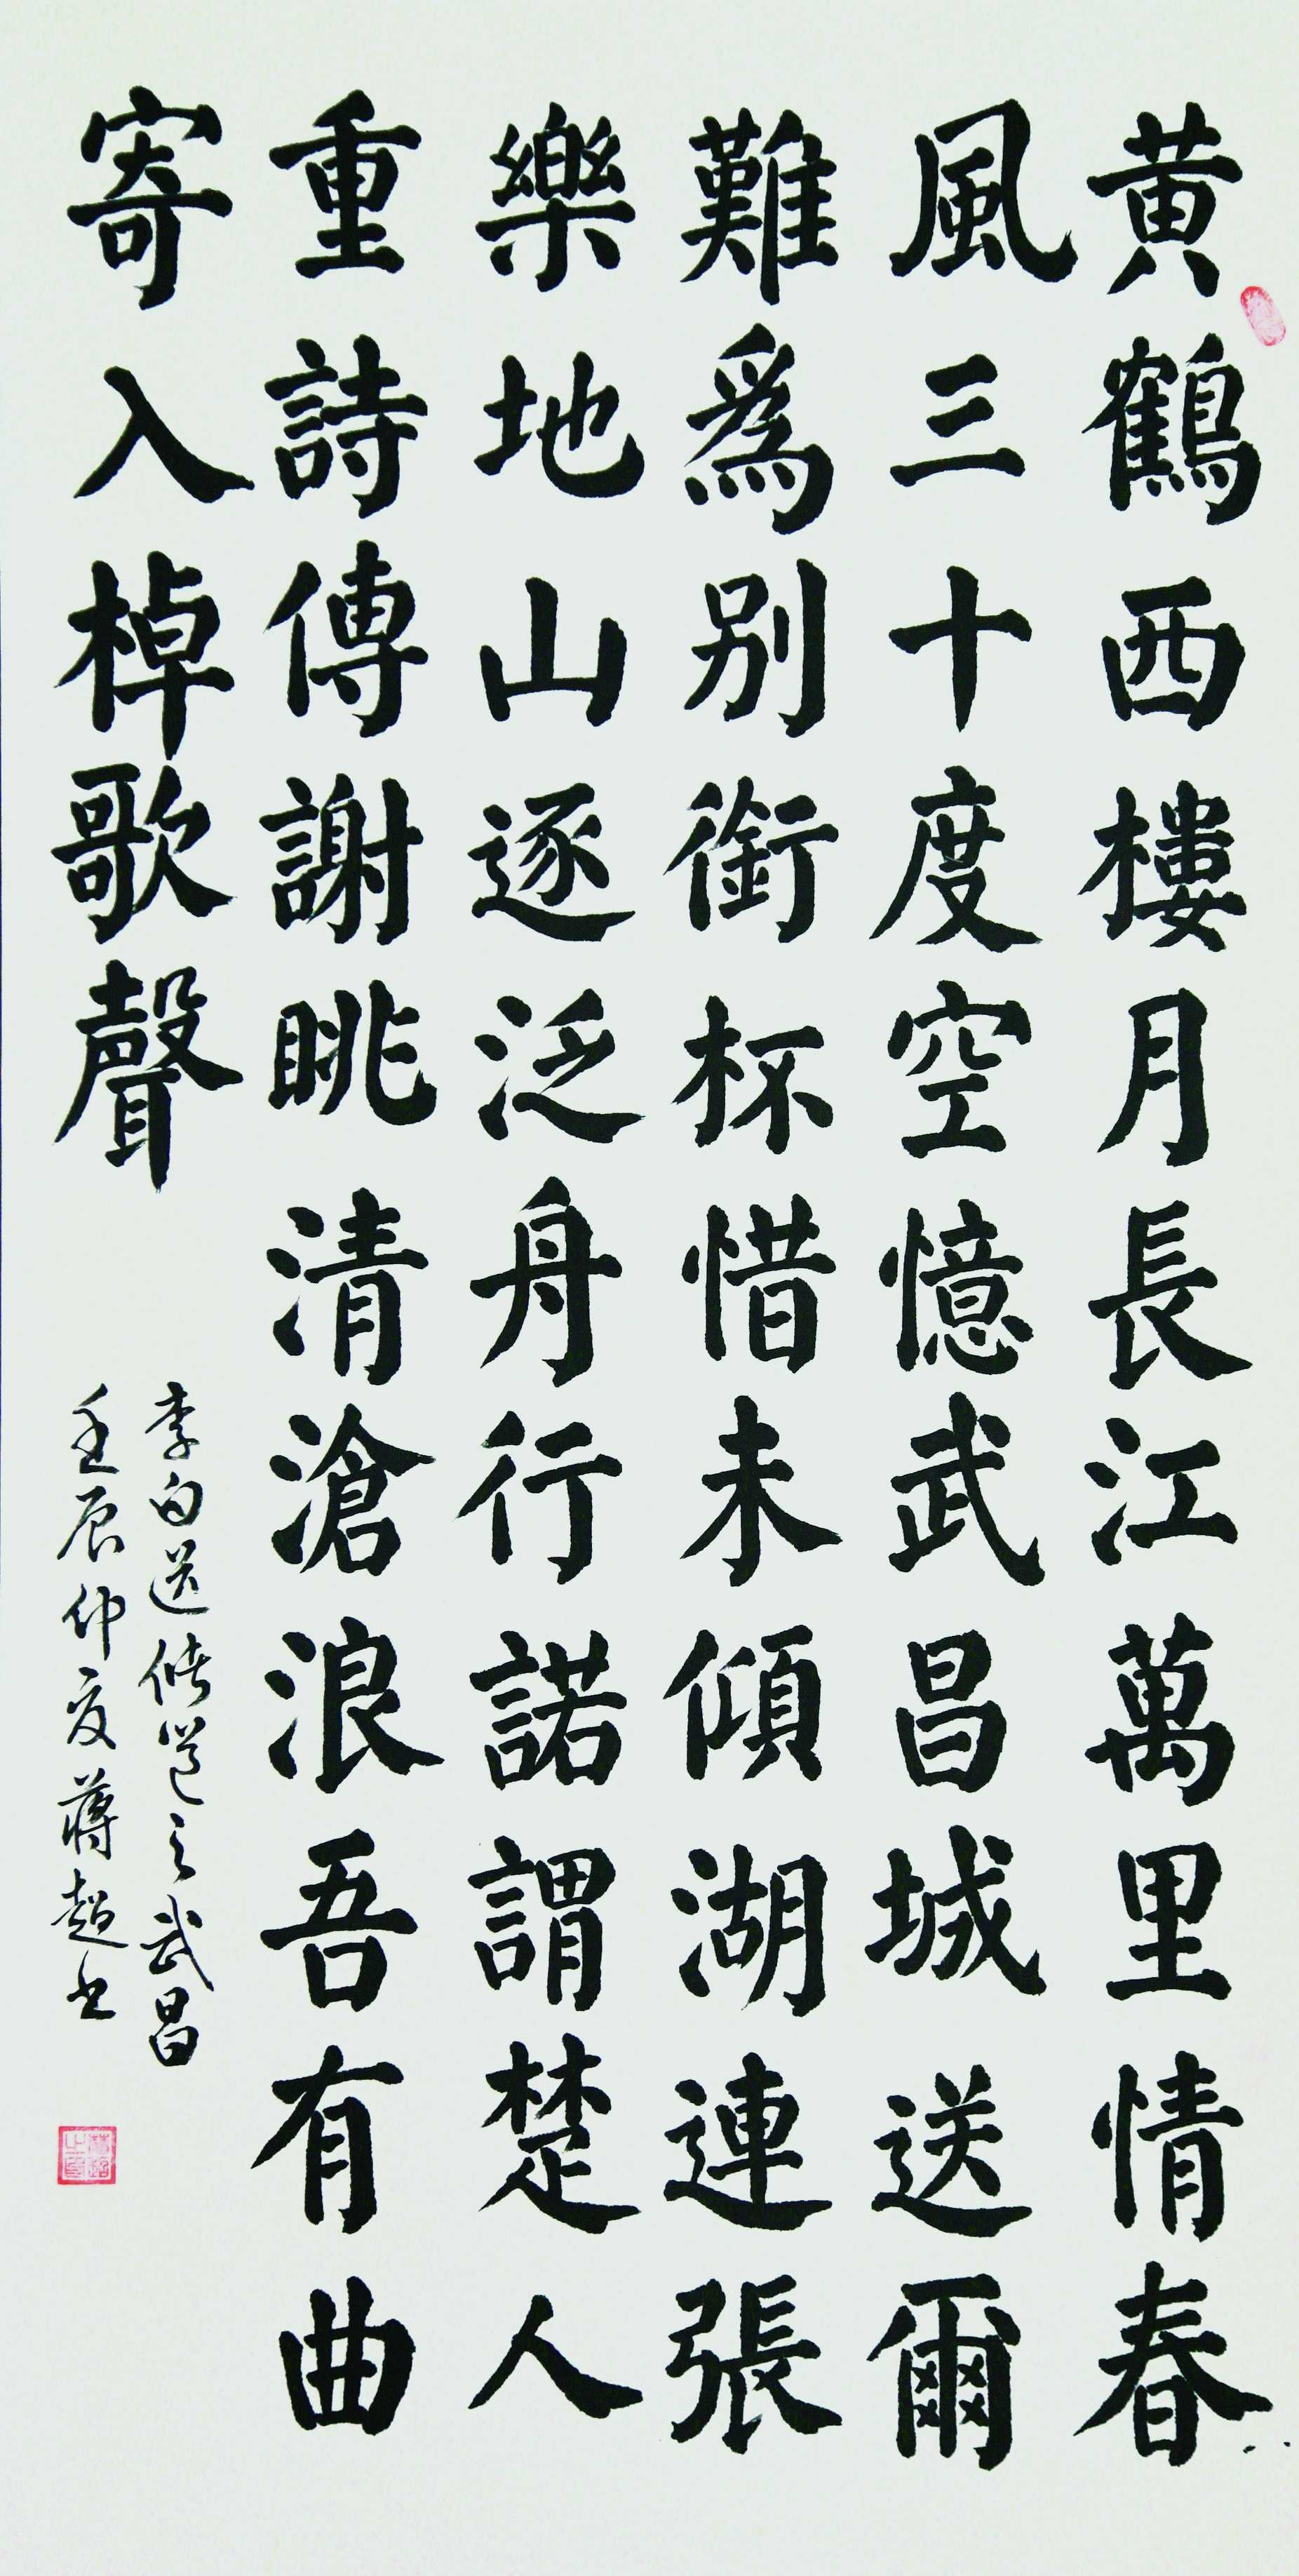 黄鶴西樓月長江萬里情春
風三十度空憶武昌城送爾
難爲别銜杯惜未傾湖連張
樂地山逐泛舟行諾謂楚人
重詩傳謝眺清滄浪吾有曲
寄入棹歌聲
李白送儲邕之武昌
壬辰仲夏蔣超书